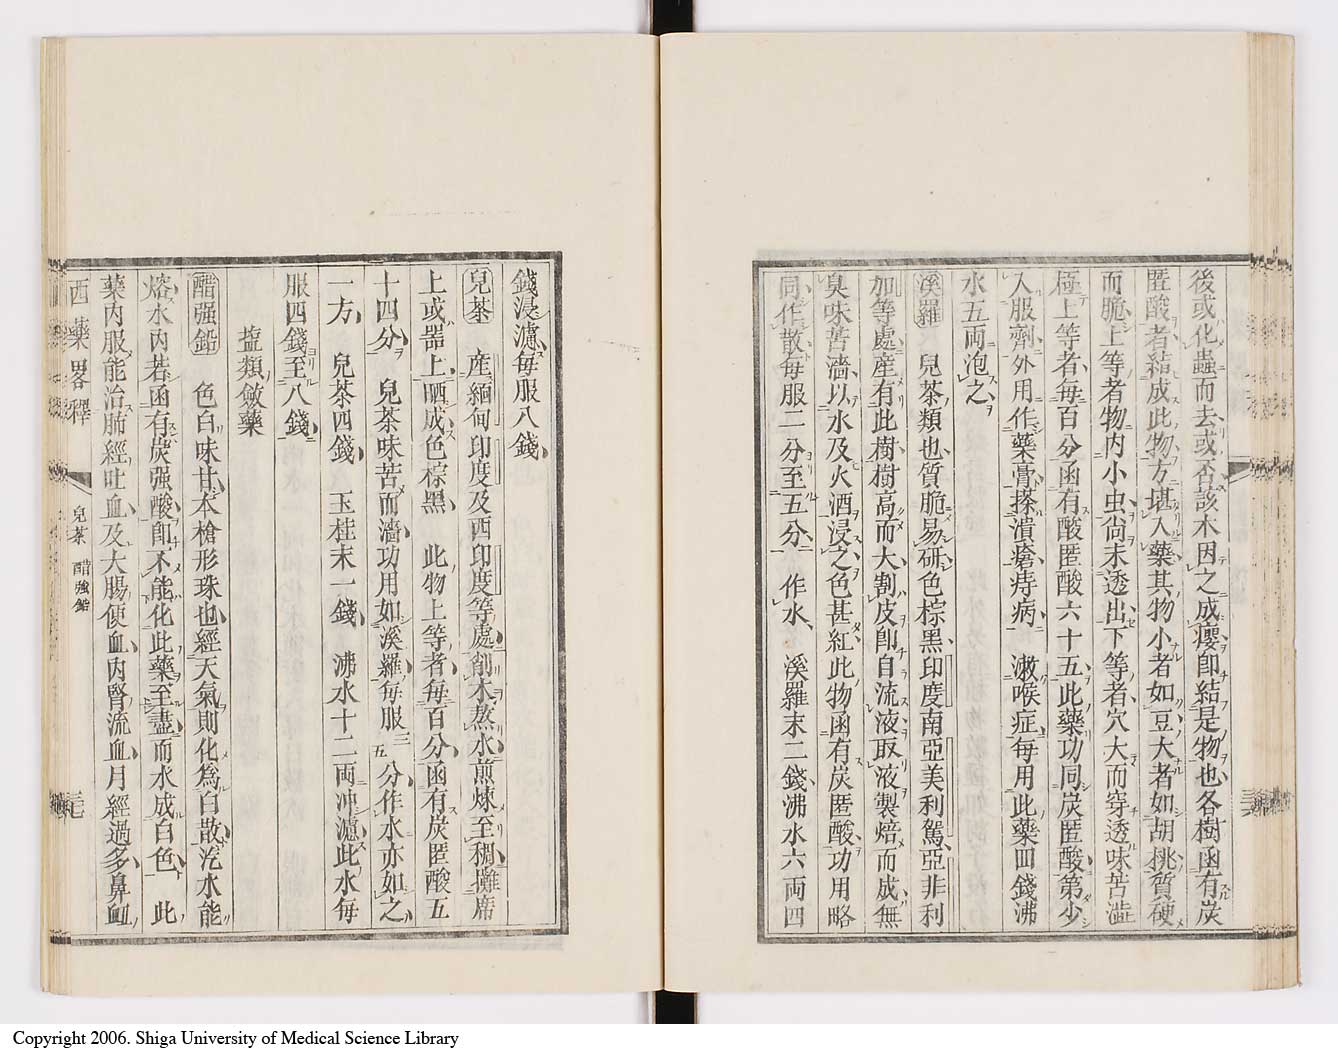 後或化蟲而去或否該木因之成癭卽結是物也各樹函有炭
匿酸者結成此物方堪入藥其物小者如豆大者如胡挑質硬
而脆上等者物内小虫尙未透出下等者穴大而穿透味苦澁
極上等者每百分函有酸匿酸六十五此藥功同炭匿酸第少
入服劑外用作藥膏搽潰瘡痔病 漱喉症每用此藥四錢沸
水五両泡之
溪羅 兒茶類也質脆易研色棕黑印度南亞美利駕亞非利
加等處産有此樹樹高而大割皮卽自流液取液製焙而成無
臭味苦濇以水及火酒浸之色甚紅此物函有炭匿酸功用略
同作散每服二分至五分 作水 溪羅末二錢沸水六両四
錢浸濾每服八錢
兒茶 産緬甸印度及西印度等處削木蒸水煎煉至稠攤席
上或器上晒成色棕黑 此物上等者每百分函有炭匿酸五
十四分 兒茶味苦而濇功用如溪羅每服三五分作水亦如之
一方 兒茶四錢 玉桂末一錢 沸水十二両冲濾此水每
服四錢至八錢
塩類斂藥
醋强鉛 色白味甘本槍形珠也經天氣則化爲白散汔水能
熔水内若函有炭强酸卽不能化此藥至盡而水成白色 此
藥内服能治肺經吐血及大腸便血内腎流血月經過多鼻衄
西藥畧釋 兒茶 醋强鉛
Copyright 2006. Shiga University of Medical Science Library